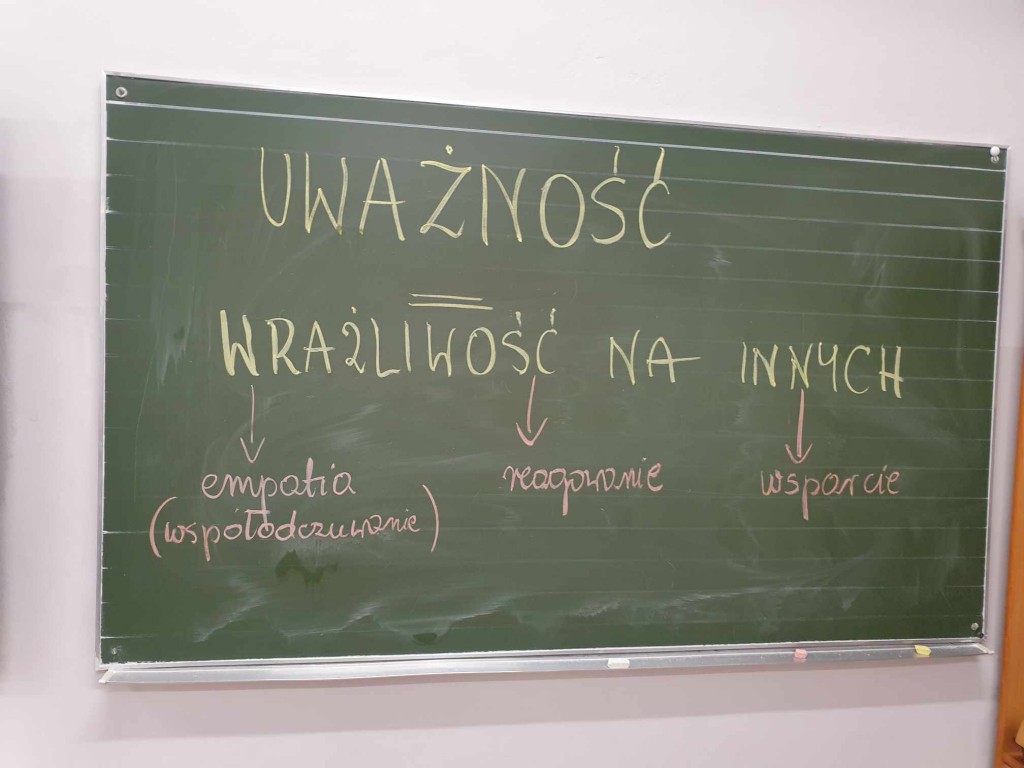 UWAŻNOŚĆ
=
WRAŻLIWOŚĆ NA INNYCH
↓ ↓ ↓
empatia reagowanie wsparcie
(współodczuwanie)